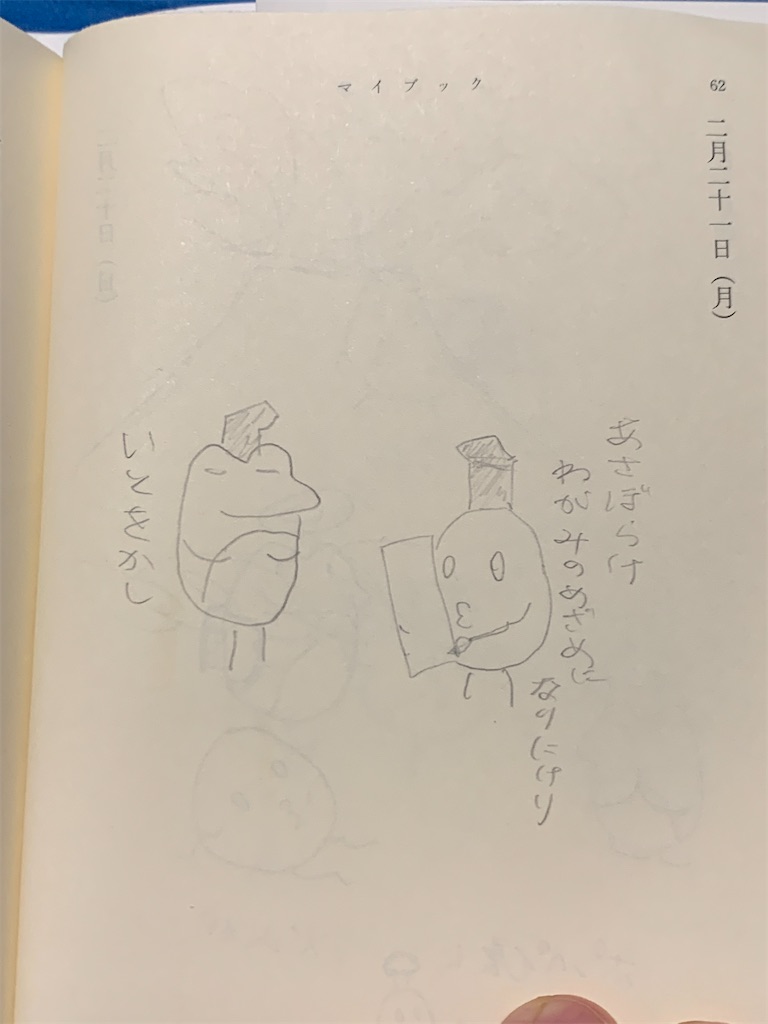 マイブック
62
二月二十一日（月）
あさぼらけ
わがみのめざめに
なりにけり
いとをかし